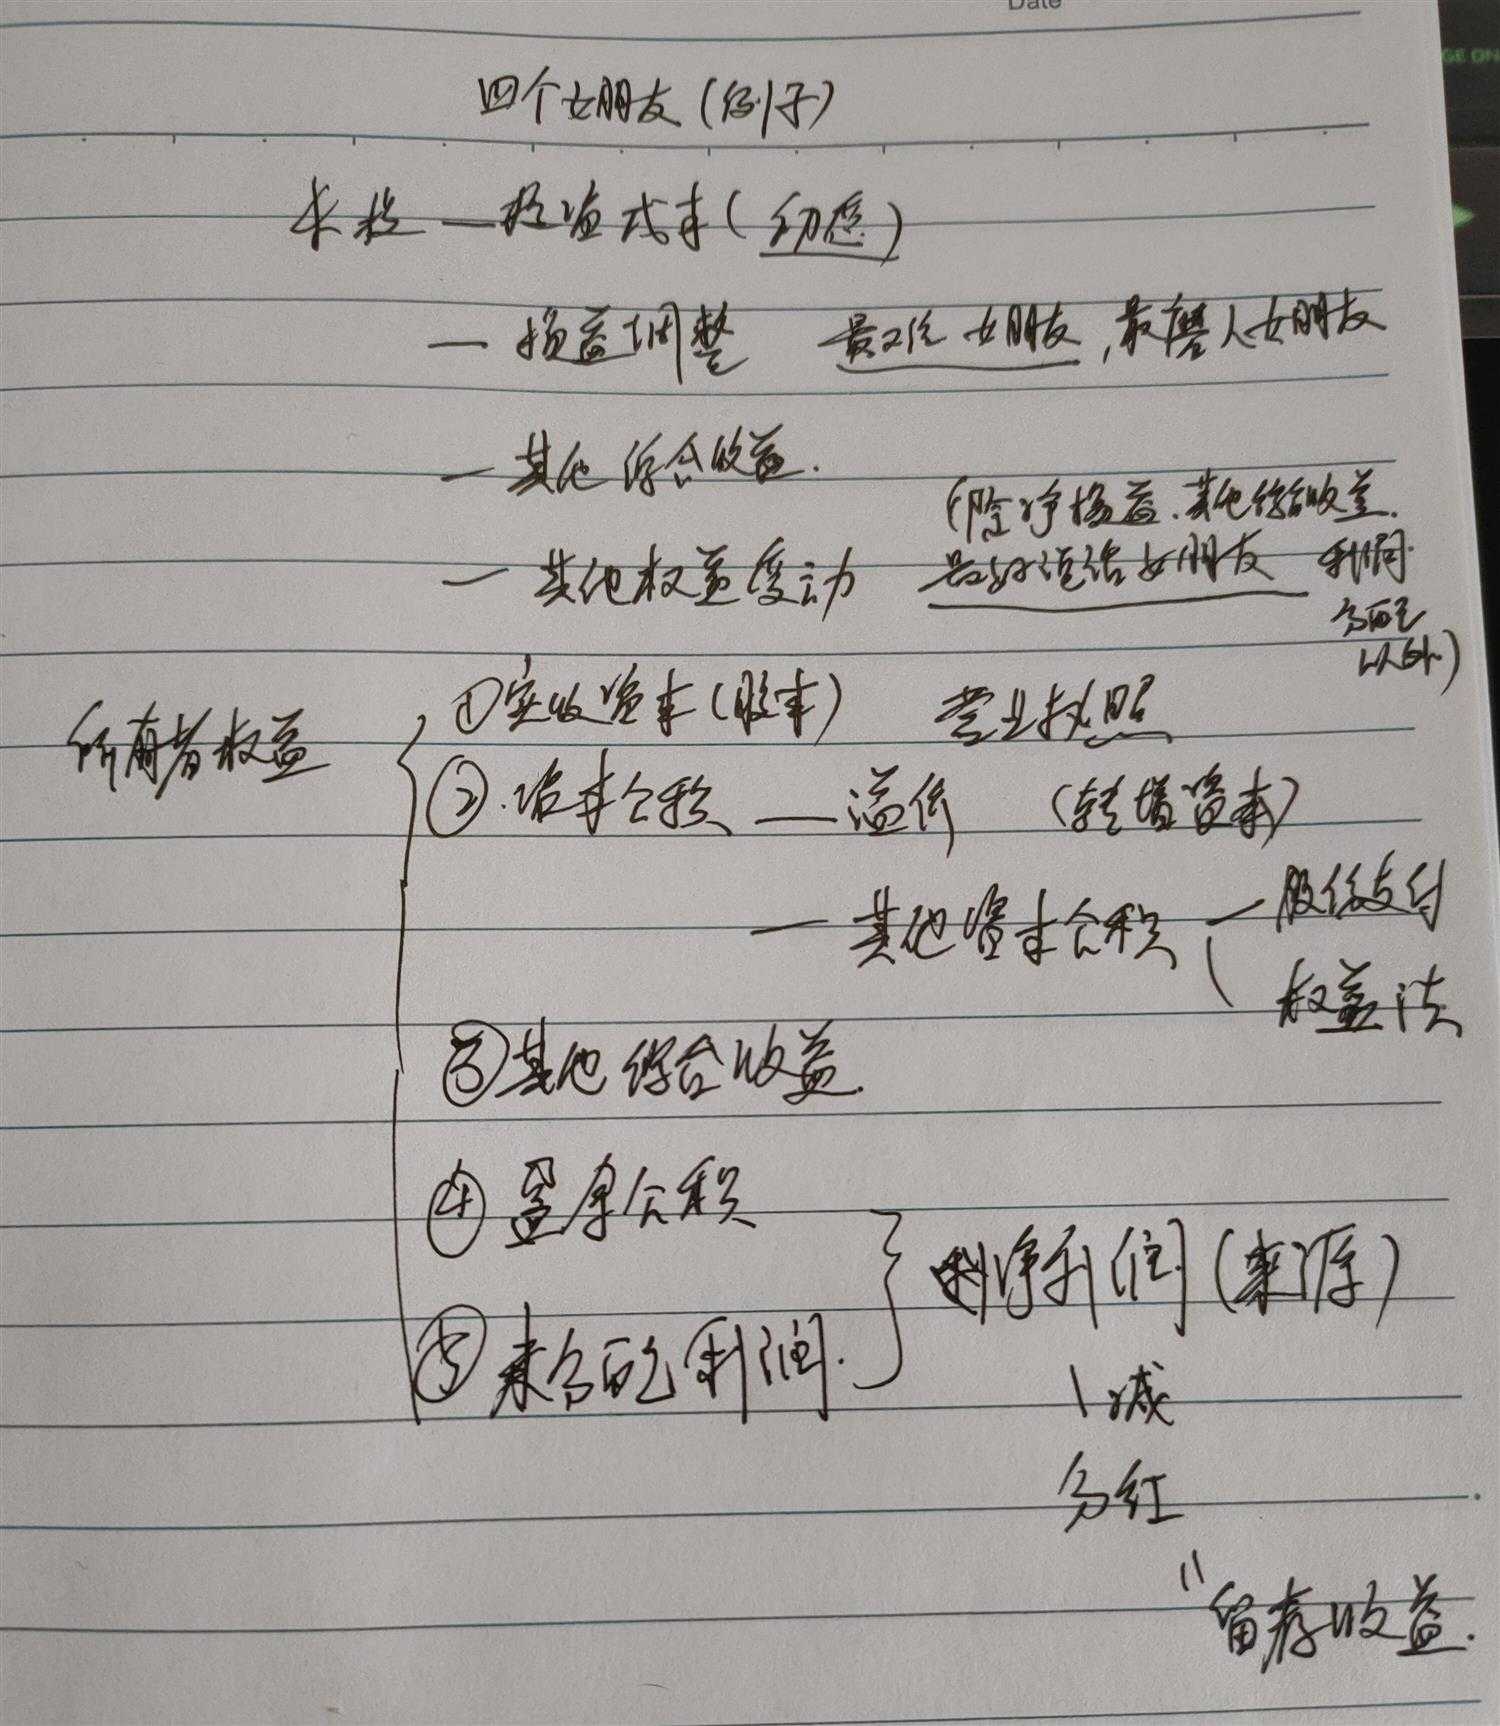 Date
GE ON
四个女朋友(例子)
长投 — 投资成本(初恋)
— 损益调整 最难 女朋友,最磨人女朋友
— 其他综合收益.
(除净损益.其他综合收益.
— 其他权益变动 最好说话女朋友 利润
分配
以外)
所有者权益
①实收资本(股本) 营业执照
②.资本公积 — 溢价 (转增资本)
— 其他资本公积 — 股份支付
权益法
③其他综合收益.
④盈余公积
净利润(来源)
⑤未分配利润.
减
分红
"留存收益.